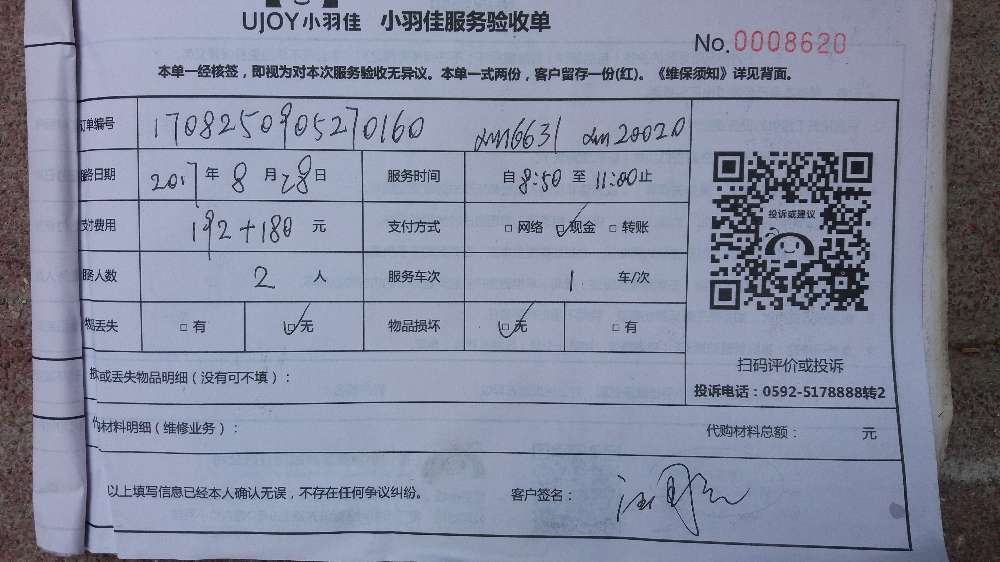 UJOY小羽佳 小羽佳服务验收单
No.0008620
本单一经核签，即视为对本次服务验收无异议。本单一式两份，客户留存一份(红)。《维保须知》详见背面。
订单编号 1708250905270160 xm6631 xm20020
服务日期 2017年8月28日 服务时间 自8:50至11:00止
支付费用 192+180 元 支付方式 □网络 ☑现金 □转账
服务人数 2 人 服务车次 1 车/次
物品丢失 □有 ☑无 物品损坏 ☑无 □有
投诉或建议
扫码评价或投诉
投诉电话：0592-5178888转2
或丢失物品明细（没有可不填）：
代购材料明细（维修业务）： 代购材料总额： 元
以上填写信息已经本人确认无误，不存在任何争议纠纷。 客户签名：